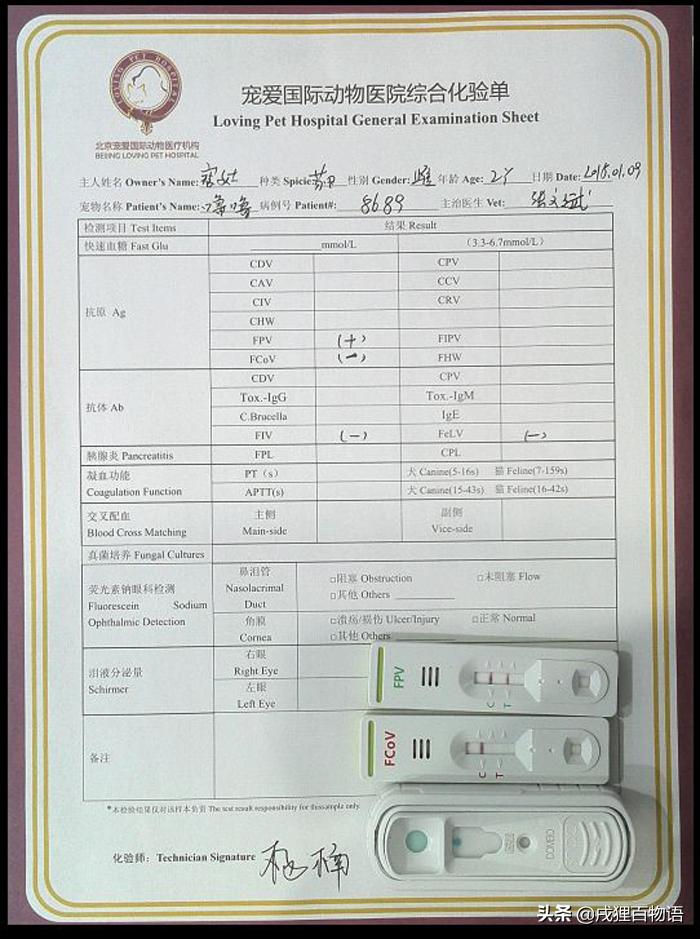 LOVING PET HOSPITAL
北京宠爱国际动物医疗机构
BEIJING LOVING PET HOSPITAL
宠爱国际动物医院综合化验单
Loving Pet Hospital General Examination Sheet
主人姓名 Owner's Name: 种类 Spicie: 性别 Gender: 雌 年龄 Age: 2Y 日期 Date: 2018.01.09
宠物名称 Patient's Name: 噜噜 病例号 Patient#: 8689 主治医生 Vet:
检测项目 Test Items 结果 Result
快速血糖 Fast Glu mmol/L （3.3-6.7mmol/L）
抗原 Ag
CDV CPV
CAV CCV
CIV CRV
CHW
FPV (+) FIPV
FCoV (-) FHW
抗体 Ab
CDV CPV
Tox.-IgG Tox.-IgM
C.Brucella IgE
FIV (-) FeLV (-)
胰腺炎 Pancreatitis FPL CPL
凝血功能
Coagulation Function
PT（s） 犬 Canine(5-16s) 猫 Feline(7-159s)
APTT(s) 犬 Canine(15-43s) 猫 Feline(16-42s)
交叉配血
Blood Cross Matching
主侧
Main-side
副侧
Vice-side
真菌培养 Fungal Cultures
荧光素钠眼科检测
Fluorescein Sodium
Ophthalmic Detection
鼻泪管
Nasolacrimal
Duct
□阻塞 Obstruction □未阻塞 Flow
□其他 Others
角膜
Cornea
□溃疡/损伤 Ulcer/Injury □正常 Normal
□其他 Others
泪液分泌量
Schirmer
右眼
Right Eye
左眼
Left Eye
FPV
C T
备注
FCoV
C T
*本检验结果仅对该样本负责 The test result responsibility for thissample only.
COMBO
化验师：Technician Signature 杨楠
头条 @戌狸百物语